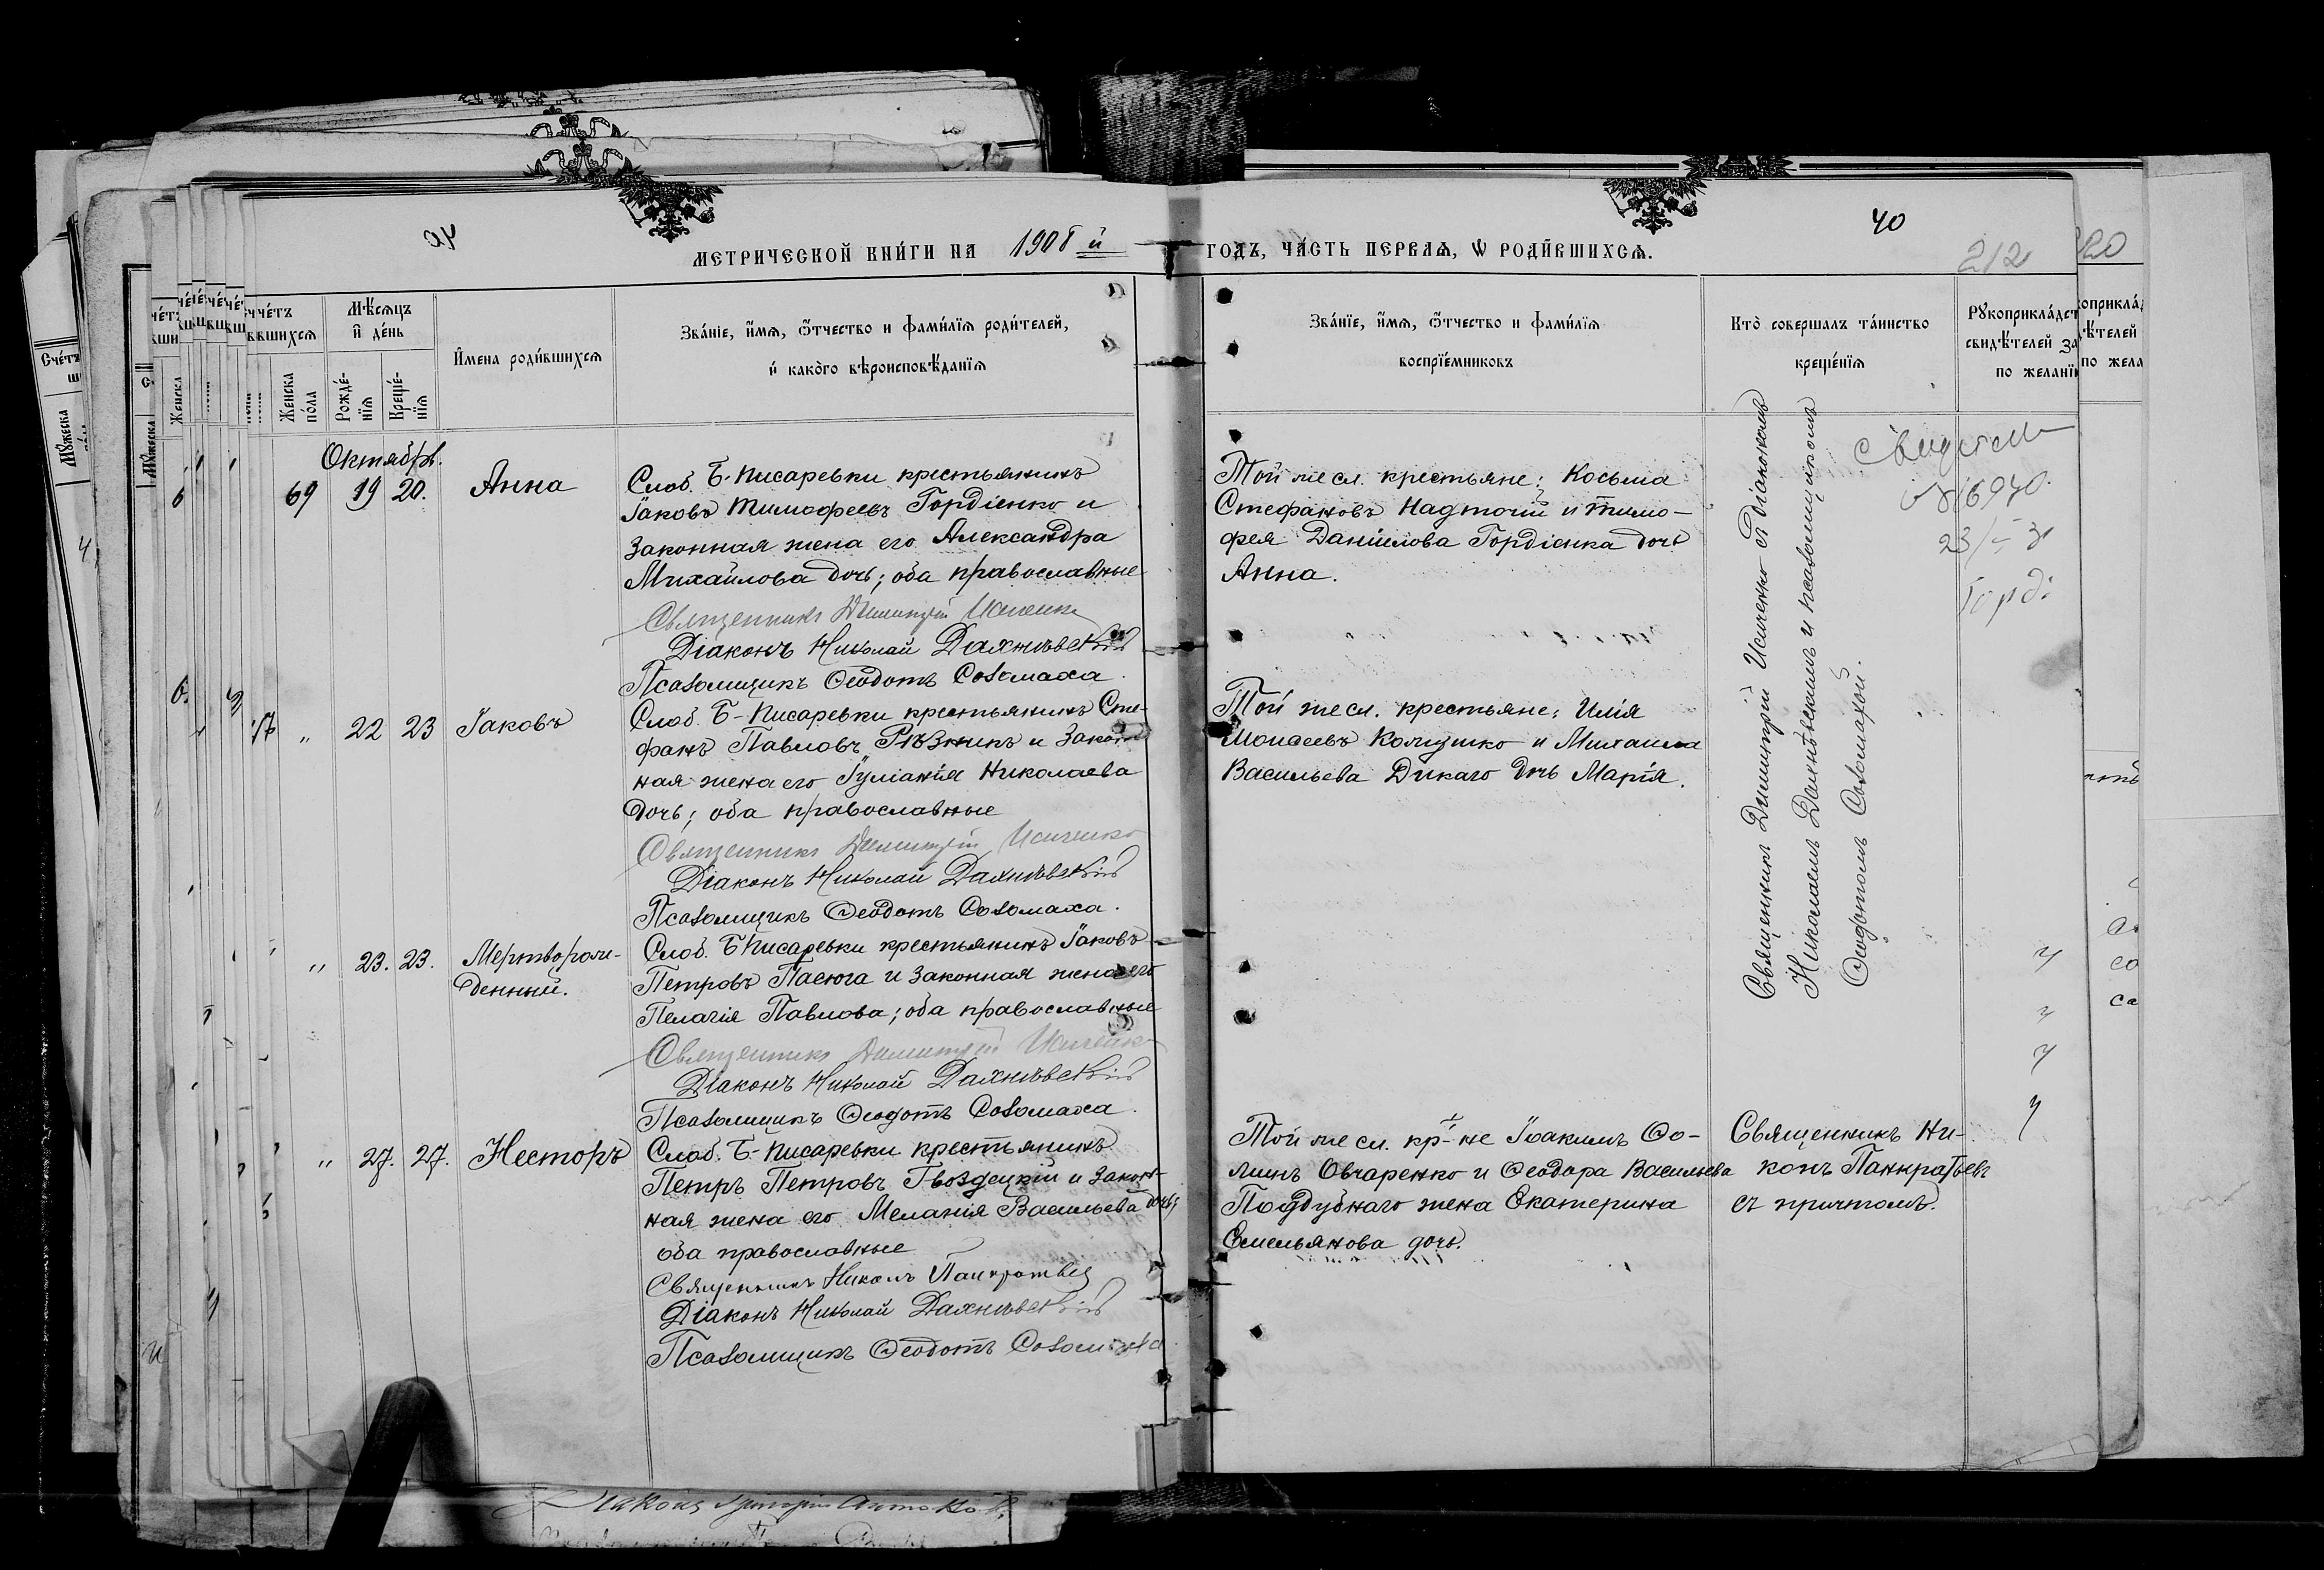 40
МЕТРИЧЕСКОЙ КНИ́ГИ НА 1908 й
ГОДЪ, ЧА́СТЬ ПЕРВАѦ, Ѡ РОДИ́ВШИХСѦ.
40
212
Мѣ́сѧцъ и де́нь
Женска по́ла
Рожде́нїѧ
Креще́нїѧ
Имена роди́вшихсѧ
Зва́нїе, и́мѧ, ѻ҆́тчество и фами́лїѧ роди́телей,
и како́го вѣроисповѣ́данїѧ
Зва́нїе, и́мѧ, ѻ҆́тчество и фами́лїѧ
воспрїе́мниковъ
Кто̀ соверша́лъ та́инство
креще́нїѧ
Рꙋкоприкла́дст
свидѣ́телей за
по жела́нїю
Октябрь.
69 19 20. Анна
Слоб. Б-Писаревки крестьянинъ
Іаковъ Тимофеевъ Гордіенко и
законная жена его Александра
Михайлова дочь; оба православные
Священникъ Димитрій Исиченко
Діаконъ Николай Дахнѣвскій
Псаломщикъ Ѳеодотъ Соломаха.
Той же сл. крестьяне: Косьма
Стефановъ Надточій и Тимо-
фея Даніилова Гордіенка дочь
Анна.
Священникъ Димитрій Исиченко съ діакономъ
Николаемъ Дахнѣвскимъ и псаломщикомъ
Ѳеодотомъ Соломахой.
16940.
Горд.
" 22 23 Іаковъ
Слоб. Б-Писаревки крестьянинъ Сте-
фанъ Павловъ Рѣзникъ и закон-
ная жена его Іуліанія Николаева
дочь; оба православные
Священникъ Димитрій Исиченко
Діаконъ Николай Дахнѣвскій
Псаломщикъ Ѳеодотъ Соломаха.
Той же сл. крестьяне: Илія
Моисеевъ и Михаила
Васильева Дикаго дочь Марія.
" 23. 23. Мертворож-
денный.
Слоб. Б Писаревки крестьянинъ Іаковъ
Петровъ Пасюга и законная жена его
Пелагія Павлова; оба православные
Священникъ Димитрій Исиченко
Діаконъ Николай Дахнѣвскій
Псаломщикъ Ѳеодотъ Соломаха.
" 27. 27. Несторъ
Слоб. Б-Писаревки крестьянинъ
Петръ Петровъ Гвоздецкій и закон-
ная жена его Меланія Васильева дочь;
оба православные
Священникъ Никонъ Панкратьевъ
Діаконъ Николай Дахнѣвскій
Псаломщикъ Ѳеодотъ Соломаха
Той же сл. кр-не Іоакимъ Ѳо-
минъ Овчаренко и Ѳеодора Васильева
Поддубнаго жена Екатерина
Емельянова дочь.
Священникъ Ни-
конъ Панкратьевъ
съ причтомъ.